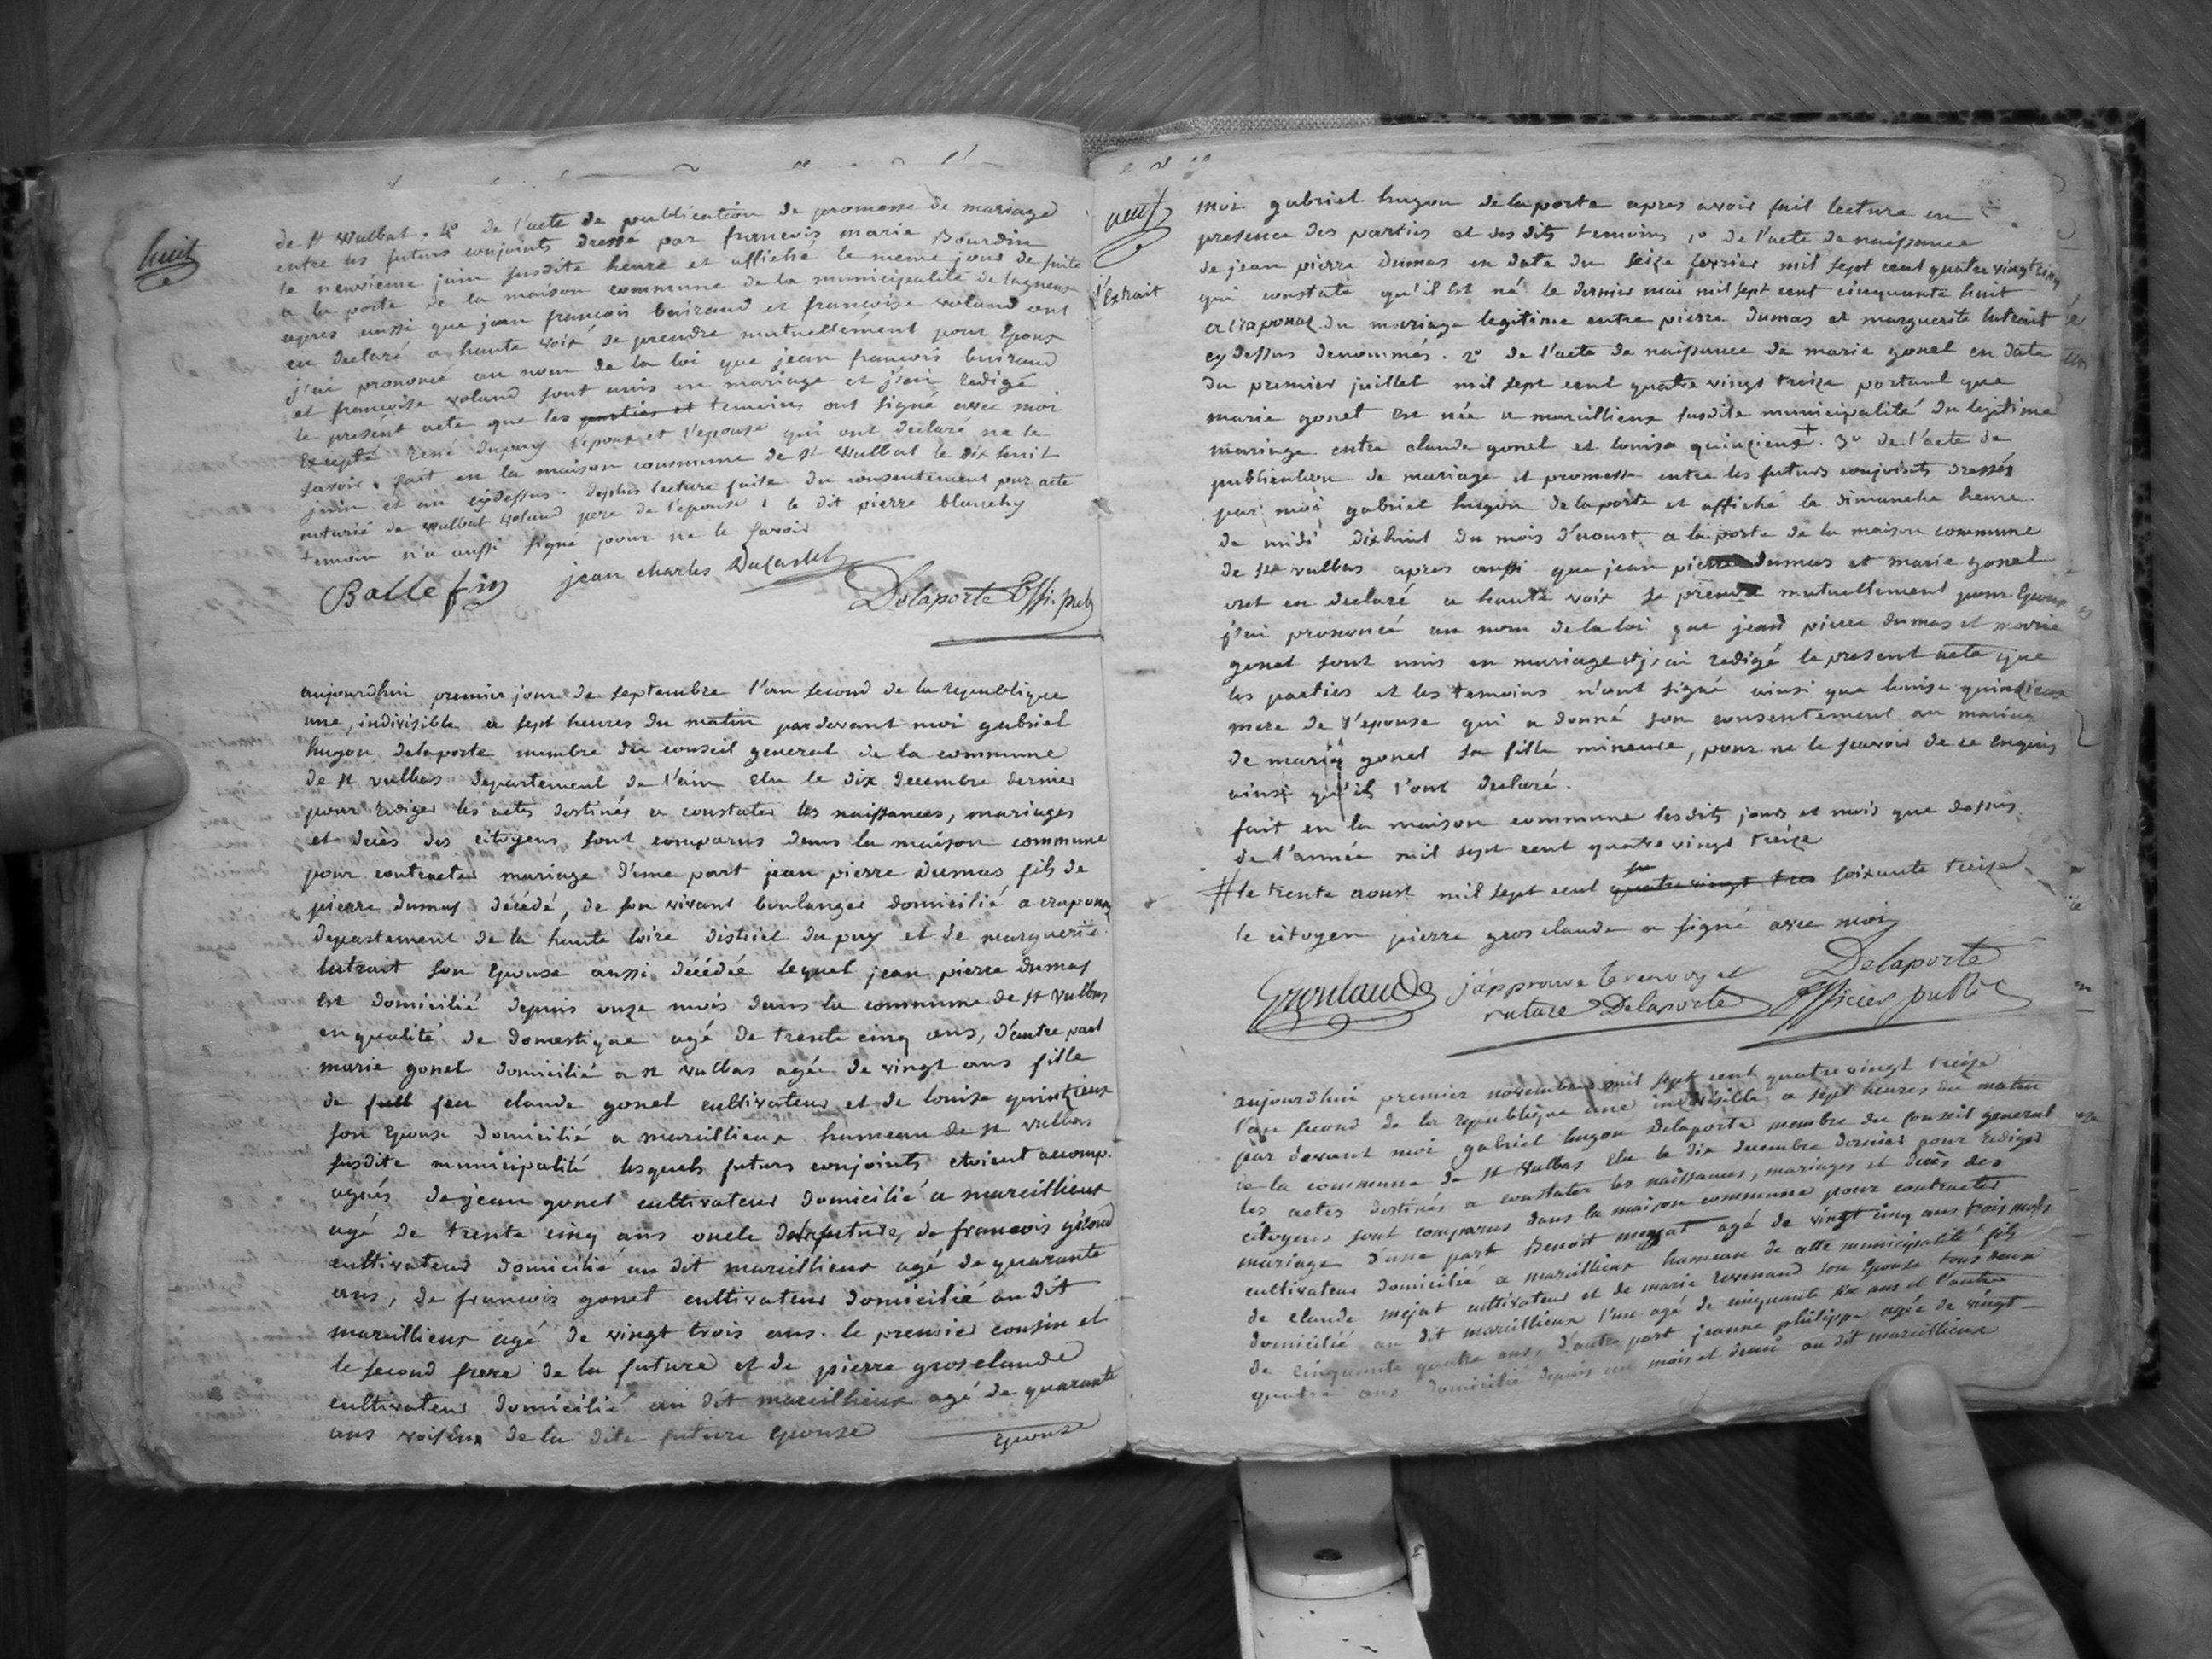 huit
de St Wulbat. 4° de l'acte de publication de promesse de mariage
entre les futurs conjoints dressé par francois marie Bourdin
le neuvieme juin susdite heure et affiché le meme jour de suite
a la porte de la maison commune de la municipalité de lagneux
apres aussi que jean francois buiraud et francoise voland ont
eu declaré a haute voix se prendre mutuellement pour Epoux
j'ai prononcé au nom de la loi que jean francois buiraud
et francoise voland sont unis en mariage et j'ai redigé
le present acte que les parties et temoins ont signé avec moi
Excepté rené dupuy l'epoux et l'epouse qui ont declaré ne le
savoir. fait en la maison commune de St Wulbat le dix huit
juin et an cydessus. deplus lecture faite du consentement par acte
notarié de Wulbat voland pere de l'epouse : le dit pierre blanchy
temoin n'a aussi signé pour ne le savoir
Ballefin jean charles Ducastel
Delaporte Offi. pub
aujourdhui premier jour de septembre l'an second de la republique
une, indivisible a sept heures du matin pardevant moi gabriel
hugon delaporte membre du conseil general de la commune
de st vulbas departement de l'ain elu le dix decembre dernier
pour rediger les actes destinés a constater les naissances, mariages
et decès des citoyens sont comparus dans la maison commune
pour contracter mariage d'une part jean pierre dumas fils de
pierre dumas décédé, de son vivant boulanger domicilié a craponaz
departement de la haute loire district du puy et de marguerite
lutrait son Epouse aussi décédée lequel jean pierre dumas
Est domicilié depuis onze mois dans la commune de st vulbas
en qualité de domestique agé de trente cinq ans, d'autre part
marie gonet domicilié a st vulbas agée de vingt ans fille
de feu claude gonet cultivateur et de louise quintieux
son Epouse domicilié a marcillieux hameau de st vulbas
susdite municipalité lesquels futurs conjoints etoient accomp.
agnés de jean gonet cultivateur domicilié a marcillieux
agé de trente cinq ans oncle de la future, de francois giroud
cultivateur domicilié au dit marcillieux agé de quarante
ans, de francois gonet cultivateur domicilié au dit
marcillieux agé de vingt trois ans. le premier cousin et
le second frere de la future et de pierre grosclaude
cultivateur domicilié au dit marcillieux agé de quarante
ans voisin de la dite future Epouse
Epouse
neuf
l'Extrait
moi gabriel hugon delaporte apres avoir fait lecture en
presence des parties et des dits temoins 1° de l'acte de naissance
de jean pierre dumas en date du seize fevrier mil sept cent quatre vingt cinq
qui constate qu'il Est né le dernier mai mil sept cent cinquante huit
a craponaz du mariage legitime entre pierre dumas et marguerite lutrait
cy dessus denommés. 2° de l'acte de naissance de marie gonet en date
du premier juillet mil sept cent quatre vingt treize portant que
marie gonet Est née a marcillieux susdite municipalité du legitime
mariage entre claude gonet et louise quinzieux +. 3° de l'acte de
publication de mariage et promesse entre les futurs conjoints dressés
par moi gabriel hugon delaporte et affiché le dimanche heure
de midi dixhuit du mois d'aoust a la porte de la maison commune
de St vulbas apres aussi que jean pierre dumas et marie gonet
ont eu declaré a haute voix se prendre mutuellement pour Epoux
j'ai prononcé au nom de la loi que jean pierre dumas et marie
gonet sont unis en mariage et j'ai redigé le present acte que
les parties et les temoins n'ont signé ainsi que louise quintieux
mere de l'epouse qui a donné son consentement au mariage
de marie gonet sa fille mineure, pour ne le scavoir de ce Enquis
ainsi qu'ils l'ont declaré.
fait en la maison commune lesdits jours et mois que dessus
de l'année mil sept cent quatre vingt treize
# le trente aoust mil sept cent quatre vingt tres soixante treize
le citoyen pierre grosclaude a signé avec moi
Groslaude j'approuve le renvoy et Delaporte
rature Delaporte Officier public
aujourdhui premier novembre mil sept cent quatre vingt treize
l'an second de la republique une indivisible a sept heures du matin
par devant moi gabriel hugon Delaporte membre du conseil general
de la commune de St Vulbas Elu le dix decembre dernier pour rediger
les actes destinés a constater les naissances, mariages et decès des
citoyens sont comparus dans la maison commune pour contracter
mariage d'une part Benoit mejat agé de vingt cinq ans trois mois
cultivateur domicilié a marcillieux hameau de cette municipalité fils
de claude mejat cultivateur et de marie revenaud son Epouse tous deux
domicilié au dit marcillieux l'un agé de cinquante six ans et l'autre
de cinquante quatre ans, d'autre part jeanne philippe agée de vingt-
quatre ans domicilié depuis un mois et demi au dit marcillieux